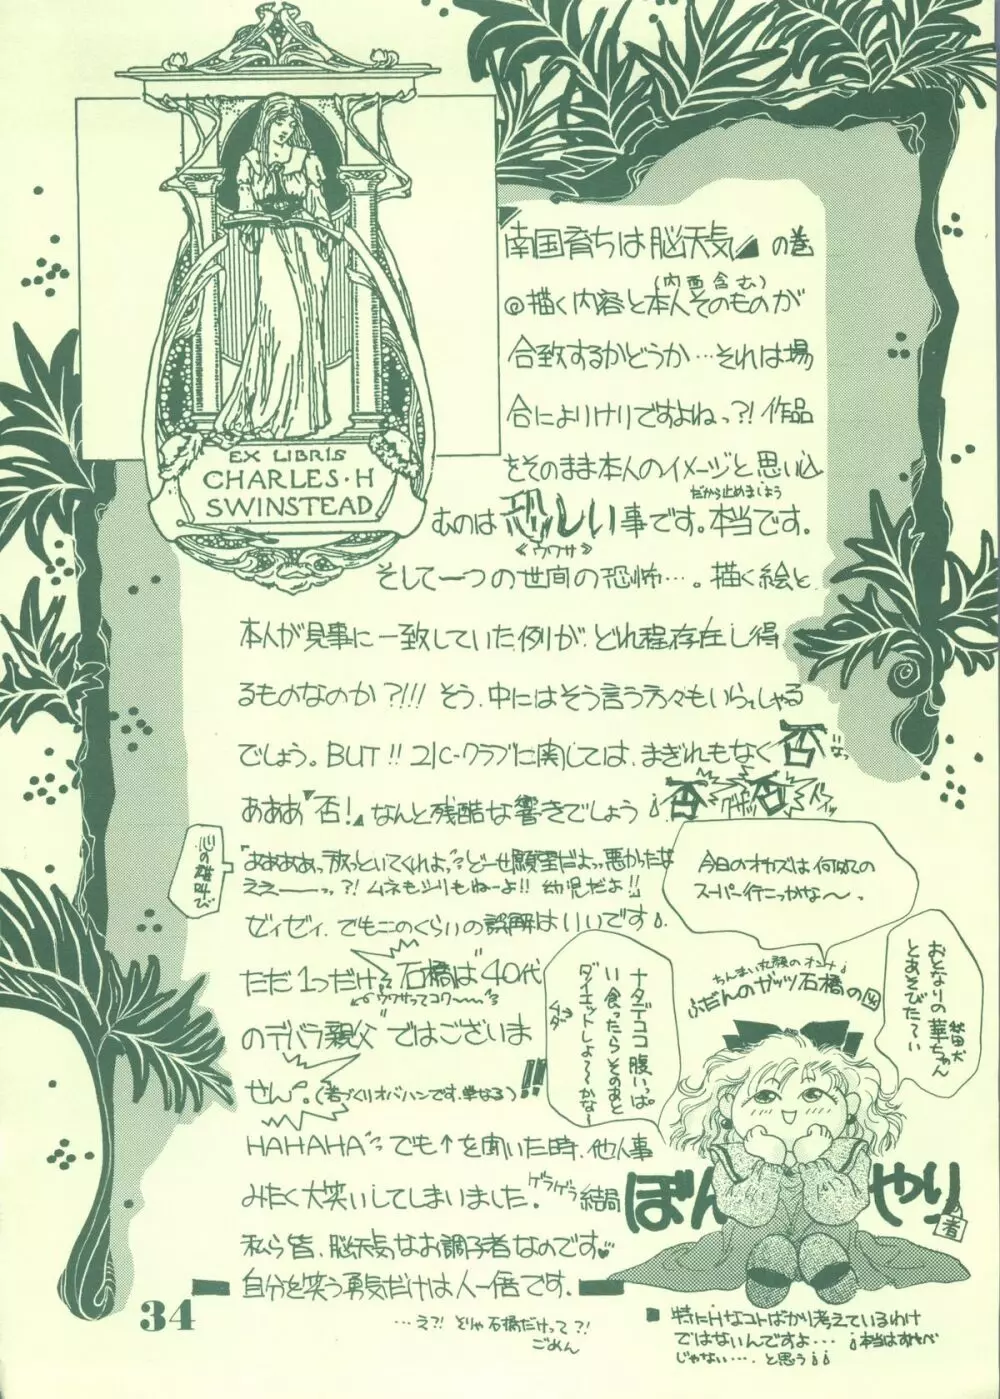 EX LIBRIS
CHARLES・H
SWINSTEAD
南国育ちは脳天気 の巻
(内面含む)
◎描く内容と本人そのものが
合致するかどうか…それは場
合によりけりですよねっ?! 作品
をそのまま本人のイメージと思い込
だから止めましょう
むのは恐しい事です。本当です。
《ウワサ》
そして一つの世間の恐怖…。描く絵と
本人が見事に一致していた例が、どれ程存在し得
るものなのか?!!! そう、中にはそう言う方々もいらっしゃる
でしょう。BUT!! 21C・クラブに関しては、まぎれもなく否
あああ"否!"なんと残酷な響きでしょう 否 否
心の雄叫び
「ああああっ放っといてくれよっ?どーせ願望だよっ悪かったな
ええーーっっ?! ムネもシリもねーよ!! 幼児だよ!!
ゼイゼイ、でもこのくらいの誤解はいいです
ただ1つだけ 石橋は"40代
ウワサってコワ〜〜
のデバラ親父"ではございま
せん。(若づくりオバハンです、単なる)!!
HAHAHA でも↑を聞いた時、他人事
みたく大笑いしてしまいました。ゲラゲラ 結局
私ら皆、脳天気なお調子者なのです♥
自分を笑う勇気だけは人一倍です。
…え?! とりゃ石橋だけって?!
ごめん
今日のオカズは何
スーパー行こっかな〜。
おとなりの華ちゃん
秋田犬
とあそびた〜い
ナタデココ腹いっぱ
い食ったらそのあと
ダイエットしよ〜〜かな〜
ムダ
ちんまい丸顔のオンナ
ふだんのガッツ石橋の図
ぼんやり
の者
■ 特にHなコトばかり考えているわけ
ではないんですよ… 本当はすけべ
じゃない…. と思う
34